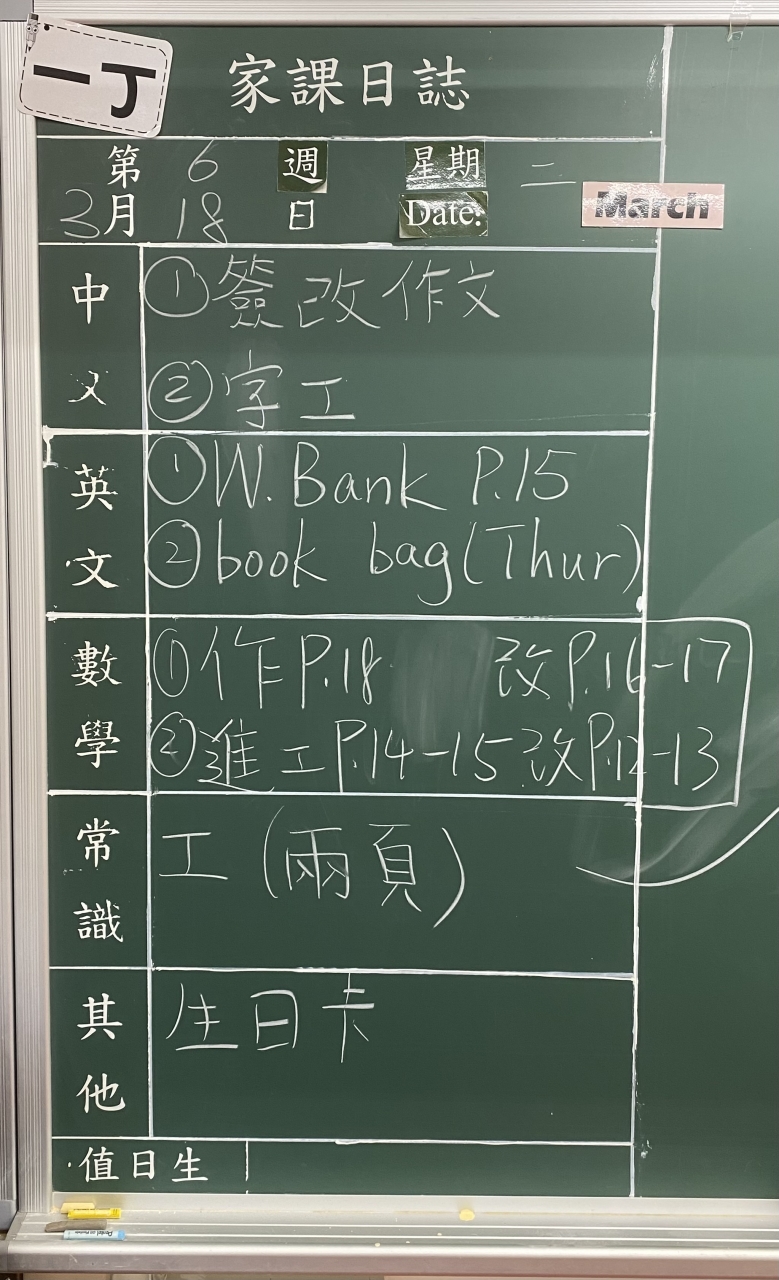 一丁
家課日誌
第 6 週 星期 二
3月 18 日 Date: March
中文
①簽改作文
②字工
英文
①W. Bank P.15
②book bag(Thur)
數學
①作P.18 改P.16-17
②進工P.14-15改P.12-13
常識
工(兩頁)
其他
生日卡
值日生